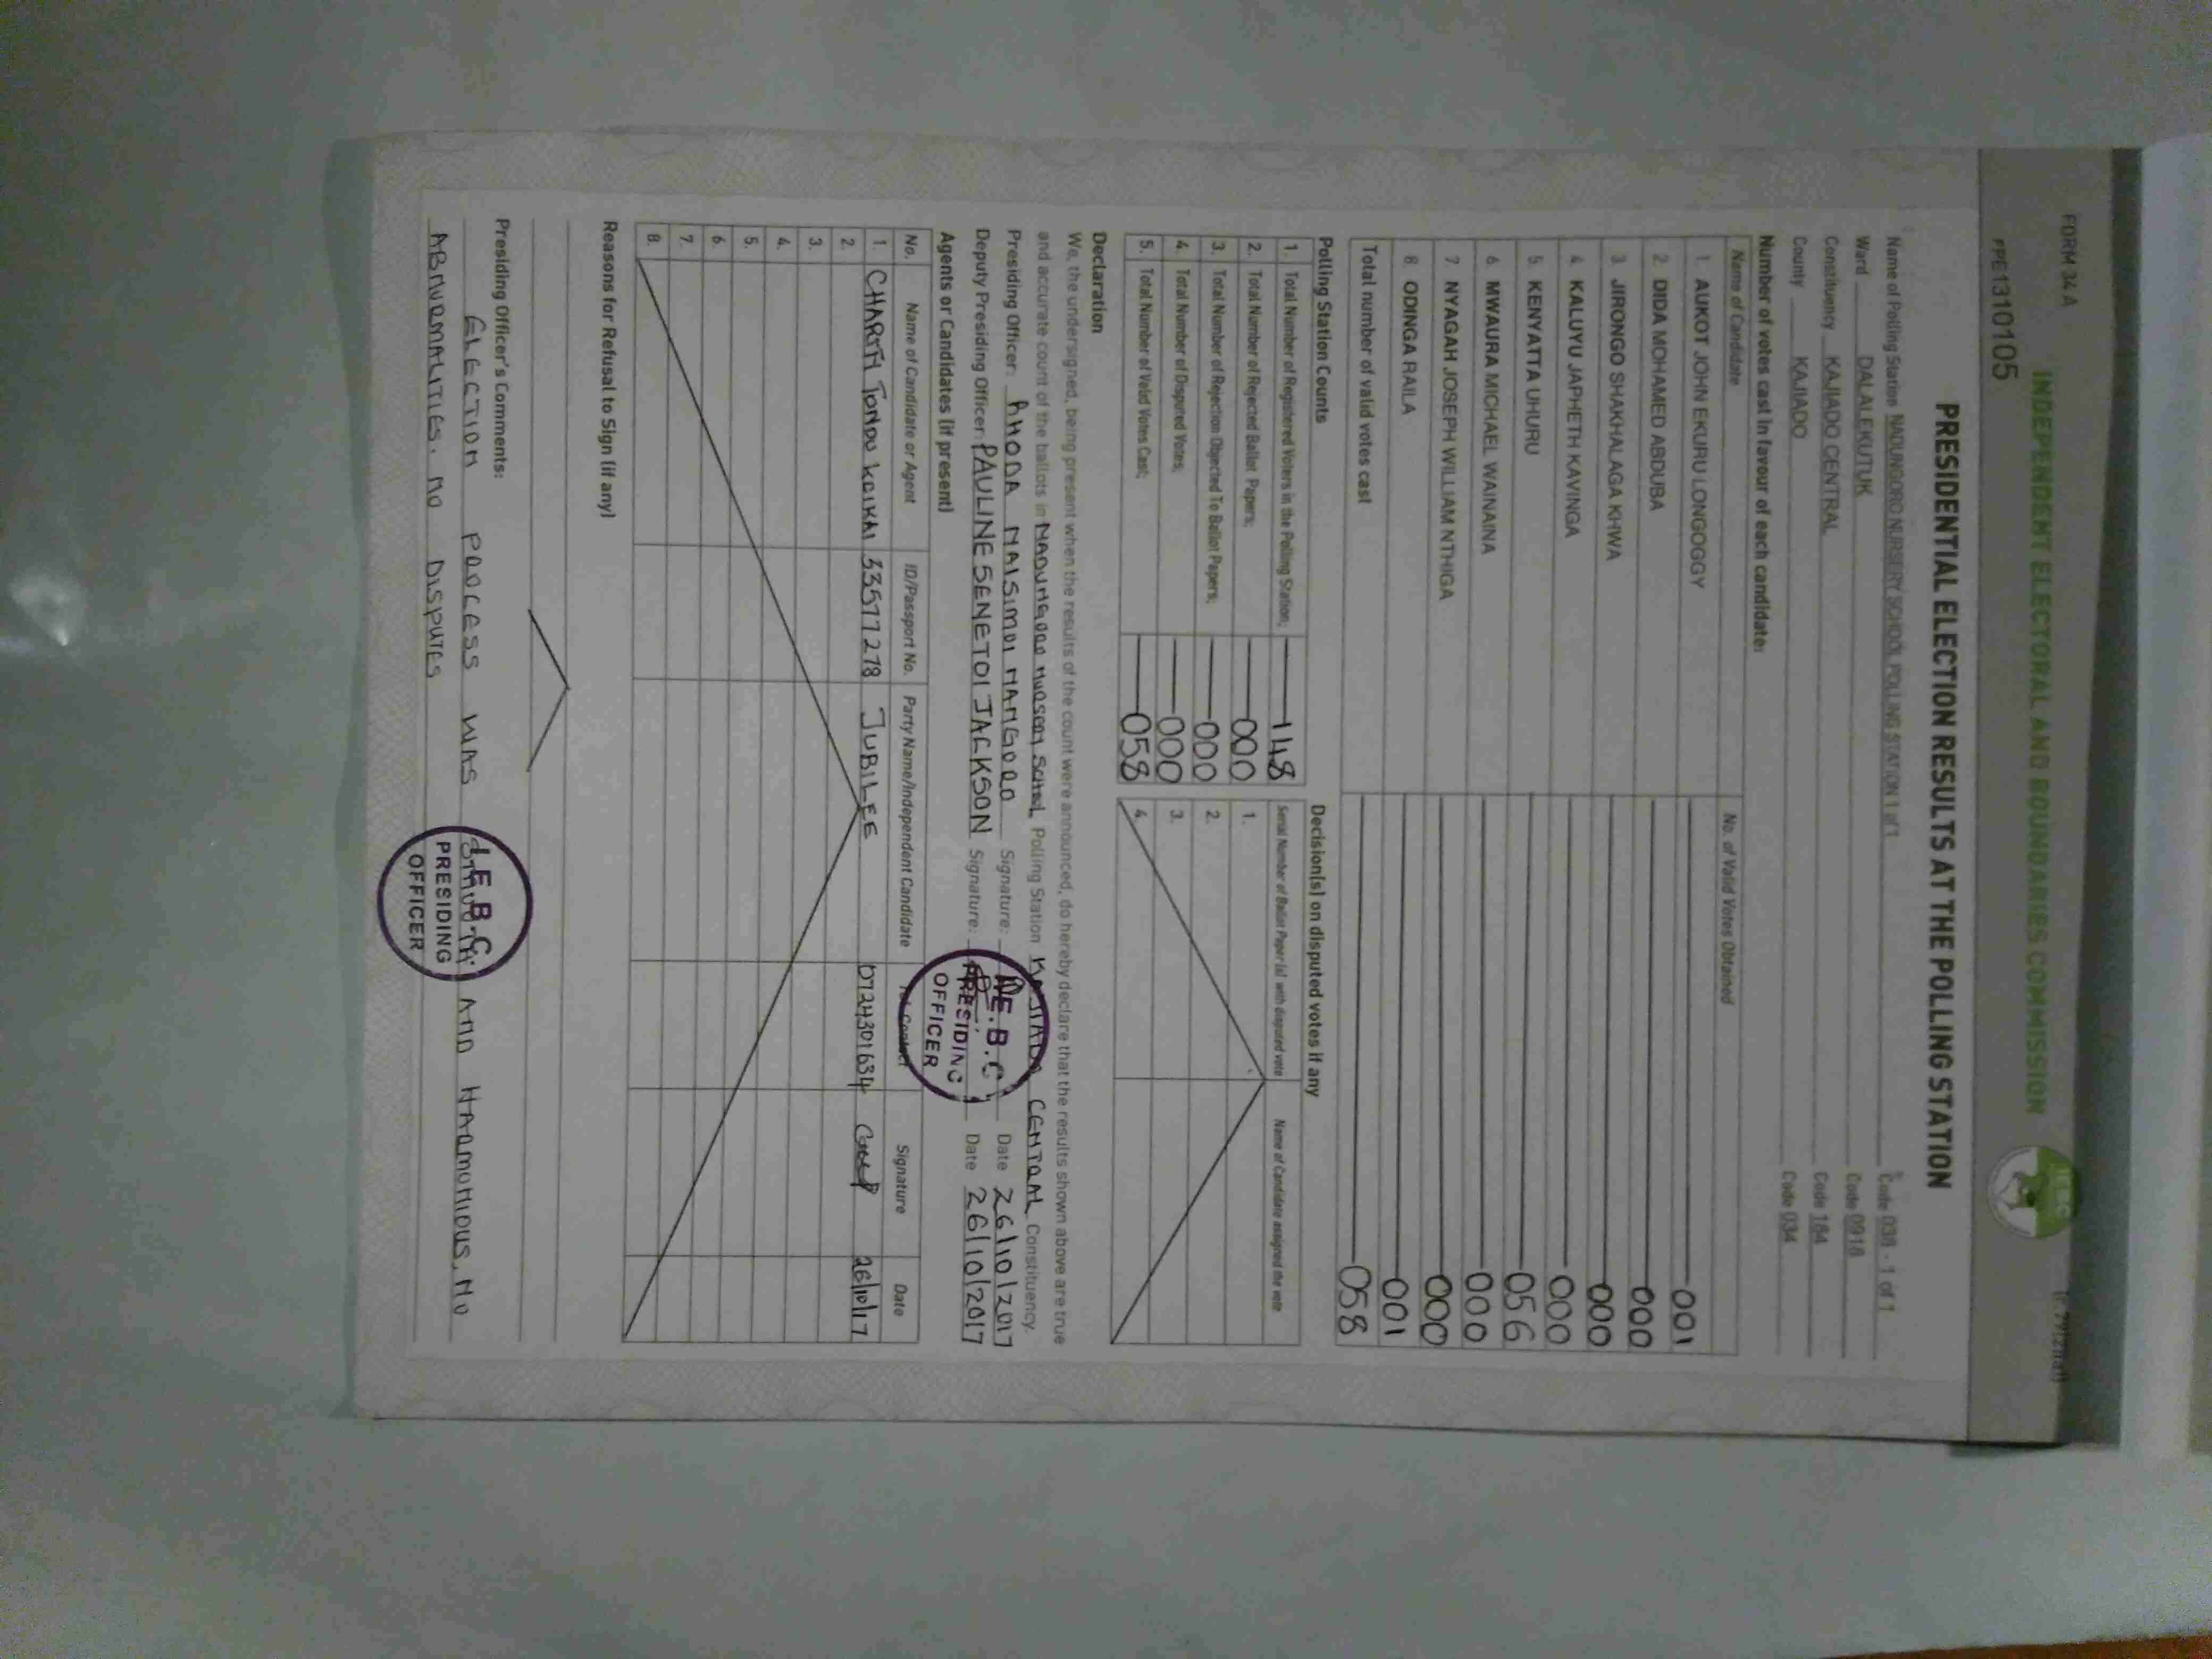 FORM 34 A
INDEPENDENT ELECTORAL AND BOUNDARIES COMMISSION
PPE1310105
PRESIDENTIAL ELECTION RESULTS AT THE POLLING STATION
Name of Polling Station NADUNGORO NURSERY SCHOOL POLLING STATION 1 of 1 Code 038 - 1 of 1
Ward DALALEKUTUK Code 0918
Constituency KAJIADO CENTRAL Code 184
County KAJIADO Code 034
Number of votes cast in favour of each candidate:
Name of Candidate No. of Valid Votes Obtained
1. AUKOT JOHN EKURU LONGOGGY 001
2. DIDA MOHAMED ABDUBA 000
3. JIRONGO SHAKHALAGA KHWA 000
4. KALUYU JAPHETH KAVINGA 000
5. KENYATTA UHURU 056
6. MWAURA MICHAEL WAINAINA 000
7. NYAGAH JOSEPH WILLIAM NTHIGA 000
8. ODINGA RAILA 001
Total number of valid votes cast 058
Polling Station Counts
1. Total Number of Registered Voters in the Polling Station; 148
2. Total Number of Rejected Ballot Papers; 000
3. Total Number of Rejection Objected To Ballot Papers; 000
4. Total Number of Disputed Votes; 000
5. Total Number of Valid Votes Cast; 058
Decision(s) on disputed votes if any
Serial Number of Ballot Paper (s) with disputed vote Name of Candidate assigned the vote
1.
2.
3.
4.
Declaration
We, the undersigned, being present when the results of the count were announced, do hereby declare that the results shown above are true
and accurate count of the ballots in NADUNGORO NURSERY School Polling Station KAJIADO CENTRAL Constituency.
Presiding Officer: RHODA NAISIMOI NANGORO Signature: Date 26/10/2017
Deputy Presiding Officer: PAULINE SENETOI JACKSON Signature: Date 26/10/2017
I.E.B.C
PRESIDING
OFFICER
Agents or Candidates (if present)
No. Name of Candidate or Agent ID/Passport No. Party Name/Independent Candidate Tel. Contact Signature Date
1. CHARITY TONDU KOIKAI 33577278 JUBILEE 0724301634 26/10/17
2.
3.
4.
5.
6.
7.
8.
Reasons for Refusal to Sign (if any)
Presiding Officer's Comments:
ELECTION PROCESS WAS AND HARMONIOUS, NO
ABNORMALITIES. NO DISPUTES
I.E.B.C.
PRESIDING
OFFICER